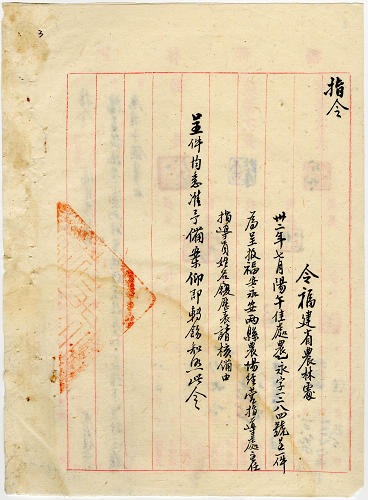 指令
令福建省農林處
卅二年七月陽午佳處農永字一二八四號呈一件
為呈報福安永安兩縣農場經營指導處主任
指導員姓名履歷表請核備由
呈件均悉准予備案仰即轉飭知照此令
3